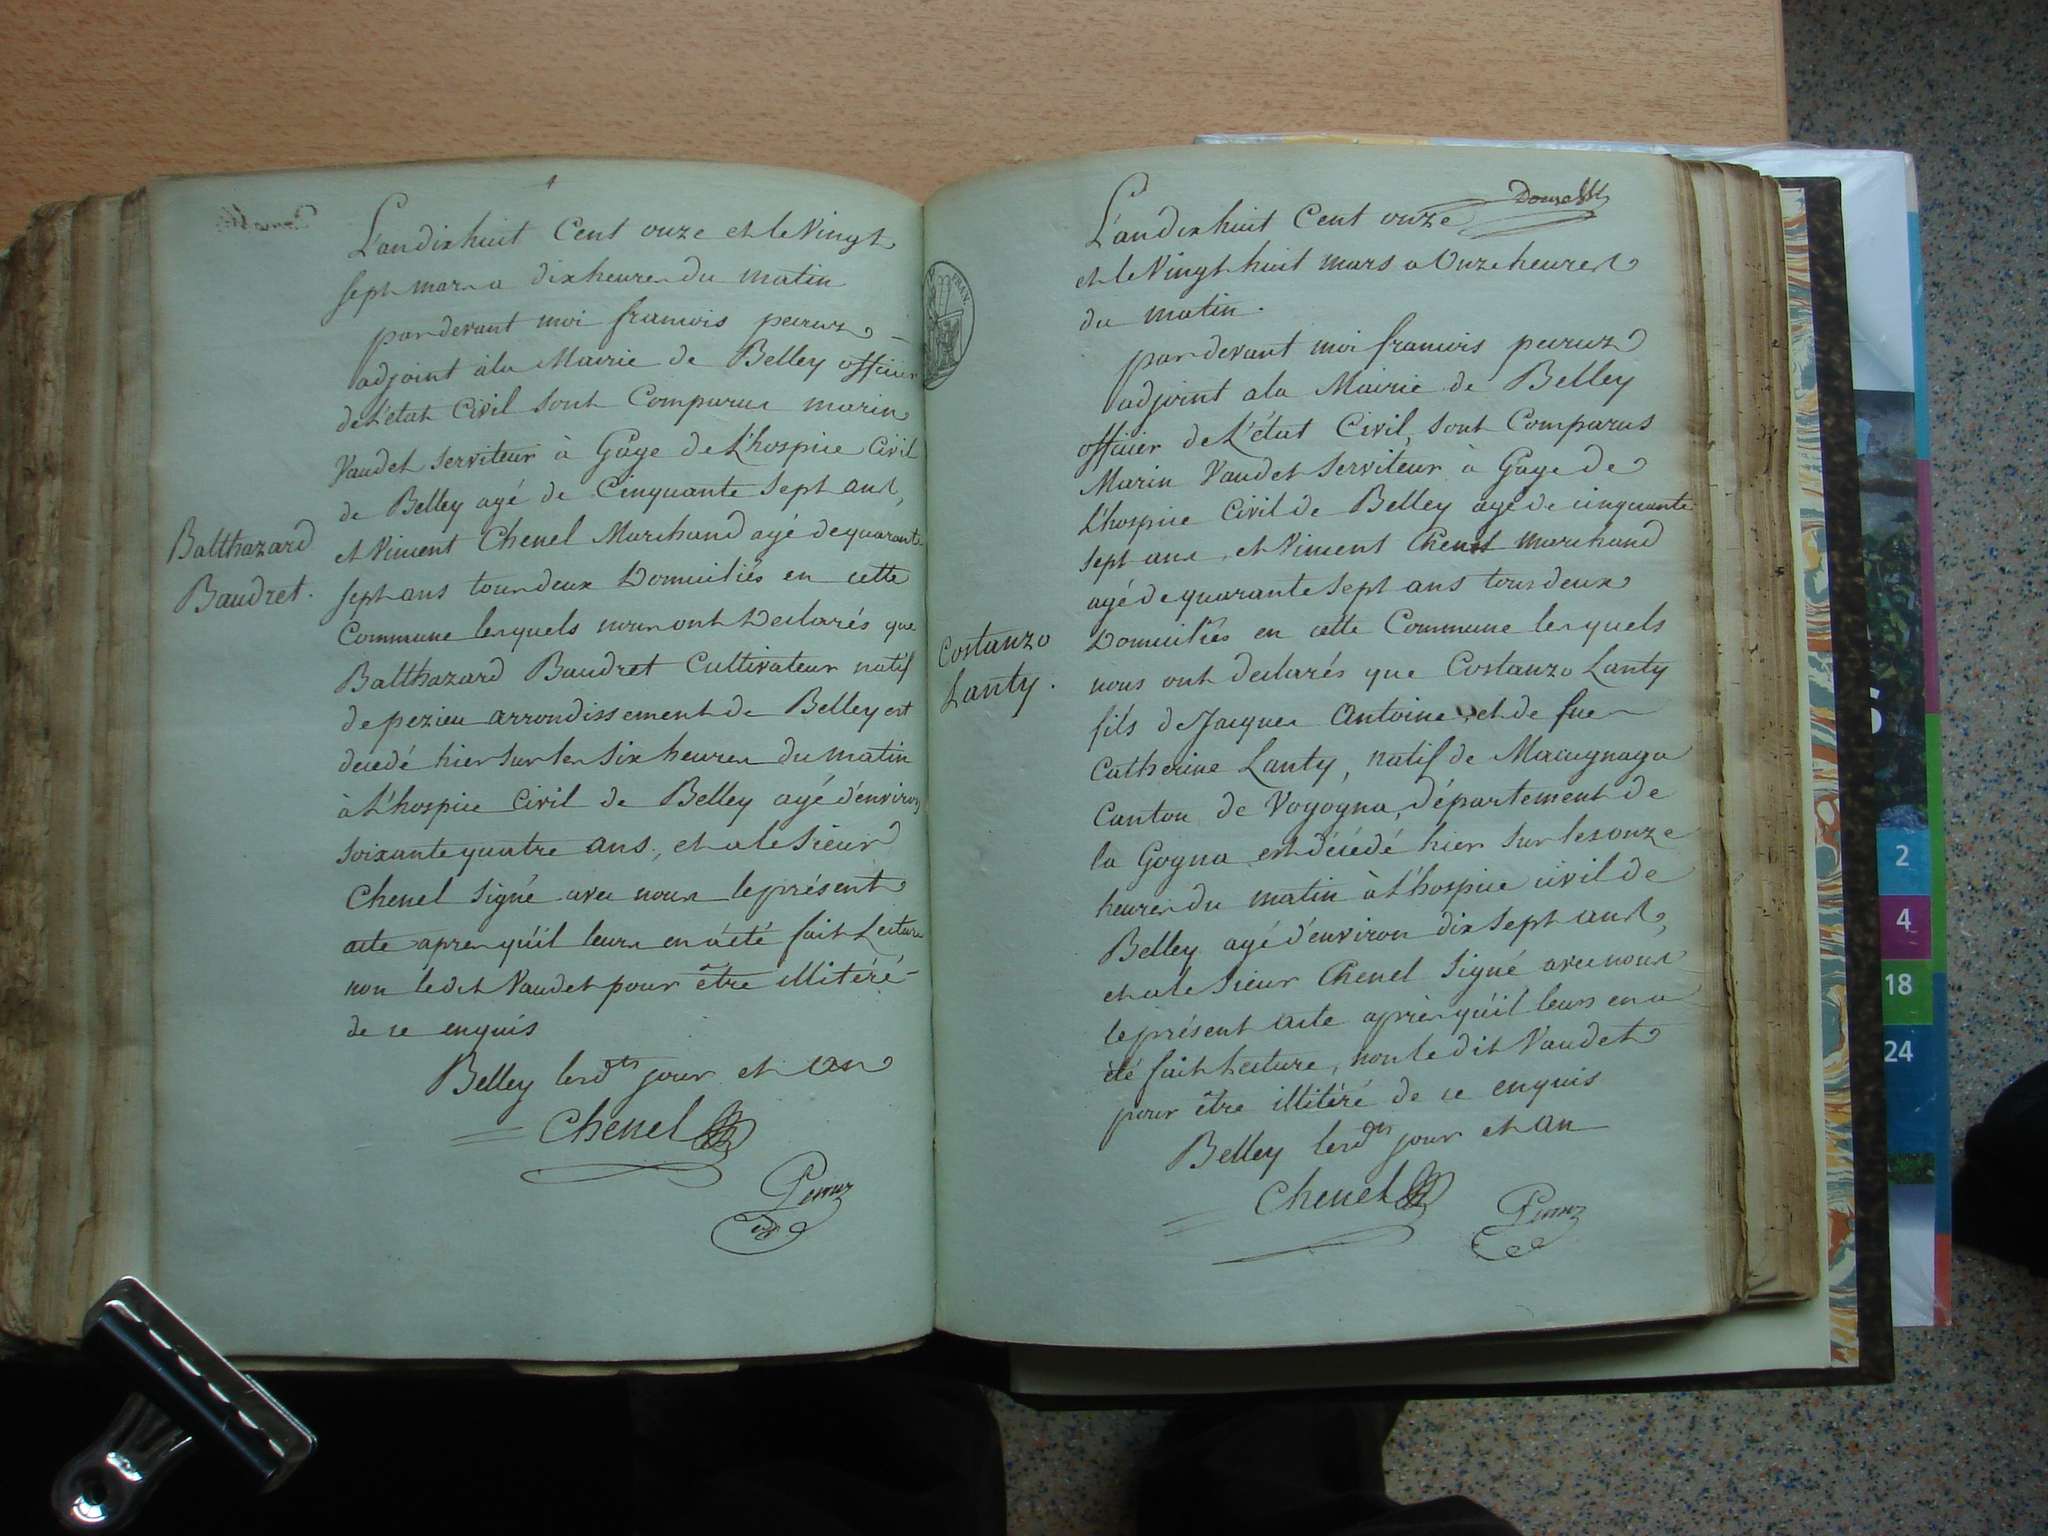 L'an dix huit Cent onze et le Vingt
sept mars a dix heures du matin
par devant moi francois peruz
adjoint à la Mairie de Belley officier
de L'état Civil sont Comparus marin
Vaudet serviteur à Gage de L'hospice Civil
de Belley agé de Cinquante sept ans,
et Vincent Chenel Marchand agé de quarante
sept ans tous deux Domiciliés en cette
Commune lesquels nous ont Declarés que
Balthazard Baudret Cultivateur natif
de pezieu arrondissement de Belley est
decedé hier sur les six heures du matin
à L'hospice Civil de Belley agé d'environ
soixante quatre ans, et a le sieur
Chenel signé avec nous le présent
acte apres qu'il leurs en a été fait Lecture
non le dit Vaudet pour être illitéré
de ce enquis
Belley les dts jour et an
Chenel
Peruz
Balthazard
Baudret.
FRAN.
L'an dix huit Cent onze
et le Vingt huit mars a Onze heures
du matin.
par devant moi francois peruz
adjoint a la Mairie de Belley
officier de L'état Civil, sont Comparus
Marin Vaudet serviteur à Gage de
L'hospice Civil de Belley agé de cinquante
sept ans, et Vincent Chenel marchand
agé de quarante sept ans tous deux
Domiciliés en cette Commune lesquels
nous ont declarés que Costanzo Lanty
fils de Jacques Antoine et de fue
Catherine Lanty, natif de Macugnaga
Canton de Vogogna, département de
la Gogna est décédé hier sur les onze
heures du matin à L'hospice civil de
Belley agé d'environ dix sept ans,
et a le sieur Chenel signé avec nous
le présent acte après qu'il leurs en a
été fait Lecture, non le dit Vaudet
pour être illitéré de ce enquis
Belley les dts jour et an
Chenel
Peruz
Costanzo
Lanty.
2
4
18
24